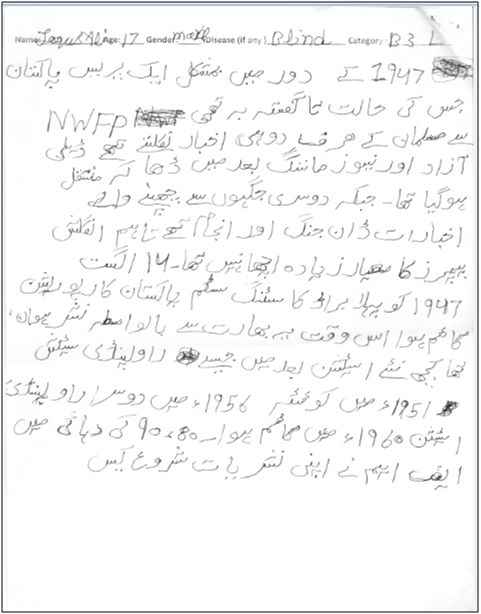 Name: Laqus Ali Age: 17 Gender: male Disease (if any) Blind Category: B3 L
1947 کے دور میں مشکل ایک پریس پاکستان
جس کی حالت نا گفتہ بہ تھی NWFP
سے مسلمان کے صرف دو ہی اخبار نکلتے تھے ڈیلی
آزاد اور نیوز مانننگ بعد میں ڈھا کہ منتقل
ہوگیا تھا۔ جبکہ دوسری جگہوں سے چھپنے والے
اخبارات ڈان جنگ اور انجام تھے تاہم انگلش
پیپرز کا معیار زیادہ اچھا نہیں تھا۔ 14 اگست
1947 کو پہلا براڈ کا سٹنگ سسٹم پاکستان کارپوریشن
قائم ہوا اس وقت یہ بھارت سے بالواسطہ نشر ہوتا
تھا کچھ نئے اسٹیشن بعد میں جیسے راولپنڈی سٹیشن
1951ء میں کوئٹہ 1956ء میں دوسرا راولپنڈی
اسٹیشن 1960ء میں قائم ہوا۔ 80ء 90 کی دہائی میں
ایف ایم نے اپنی نشریات شروع کیں